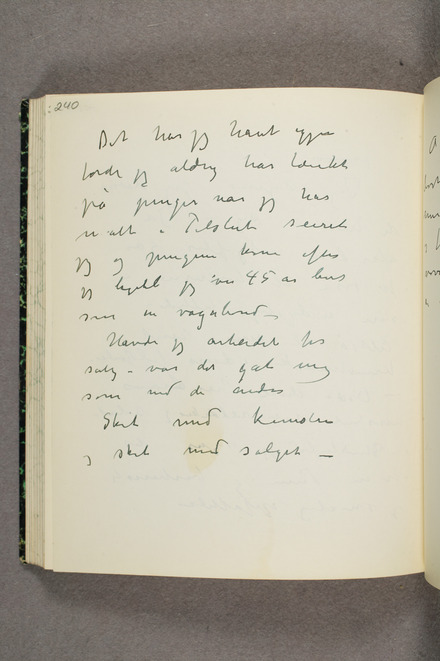 : 240
Det har jeg havt
fordi jeg aldrig har tænkt
på penger når jeg har
malt – Tilslut seiret
jeg og pengene kom efter
jeg legell jeg over 45 år levet
som en vagabond –
Havde jeg arbeidet for
salg – var det gåt mig
som med de andre
Skit med kunsten
og skit med salget –